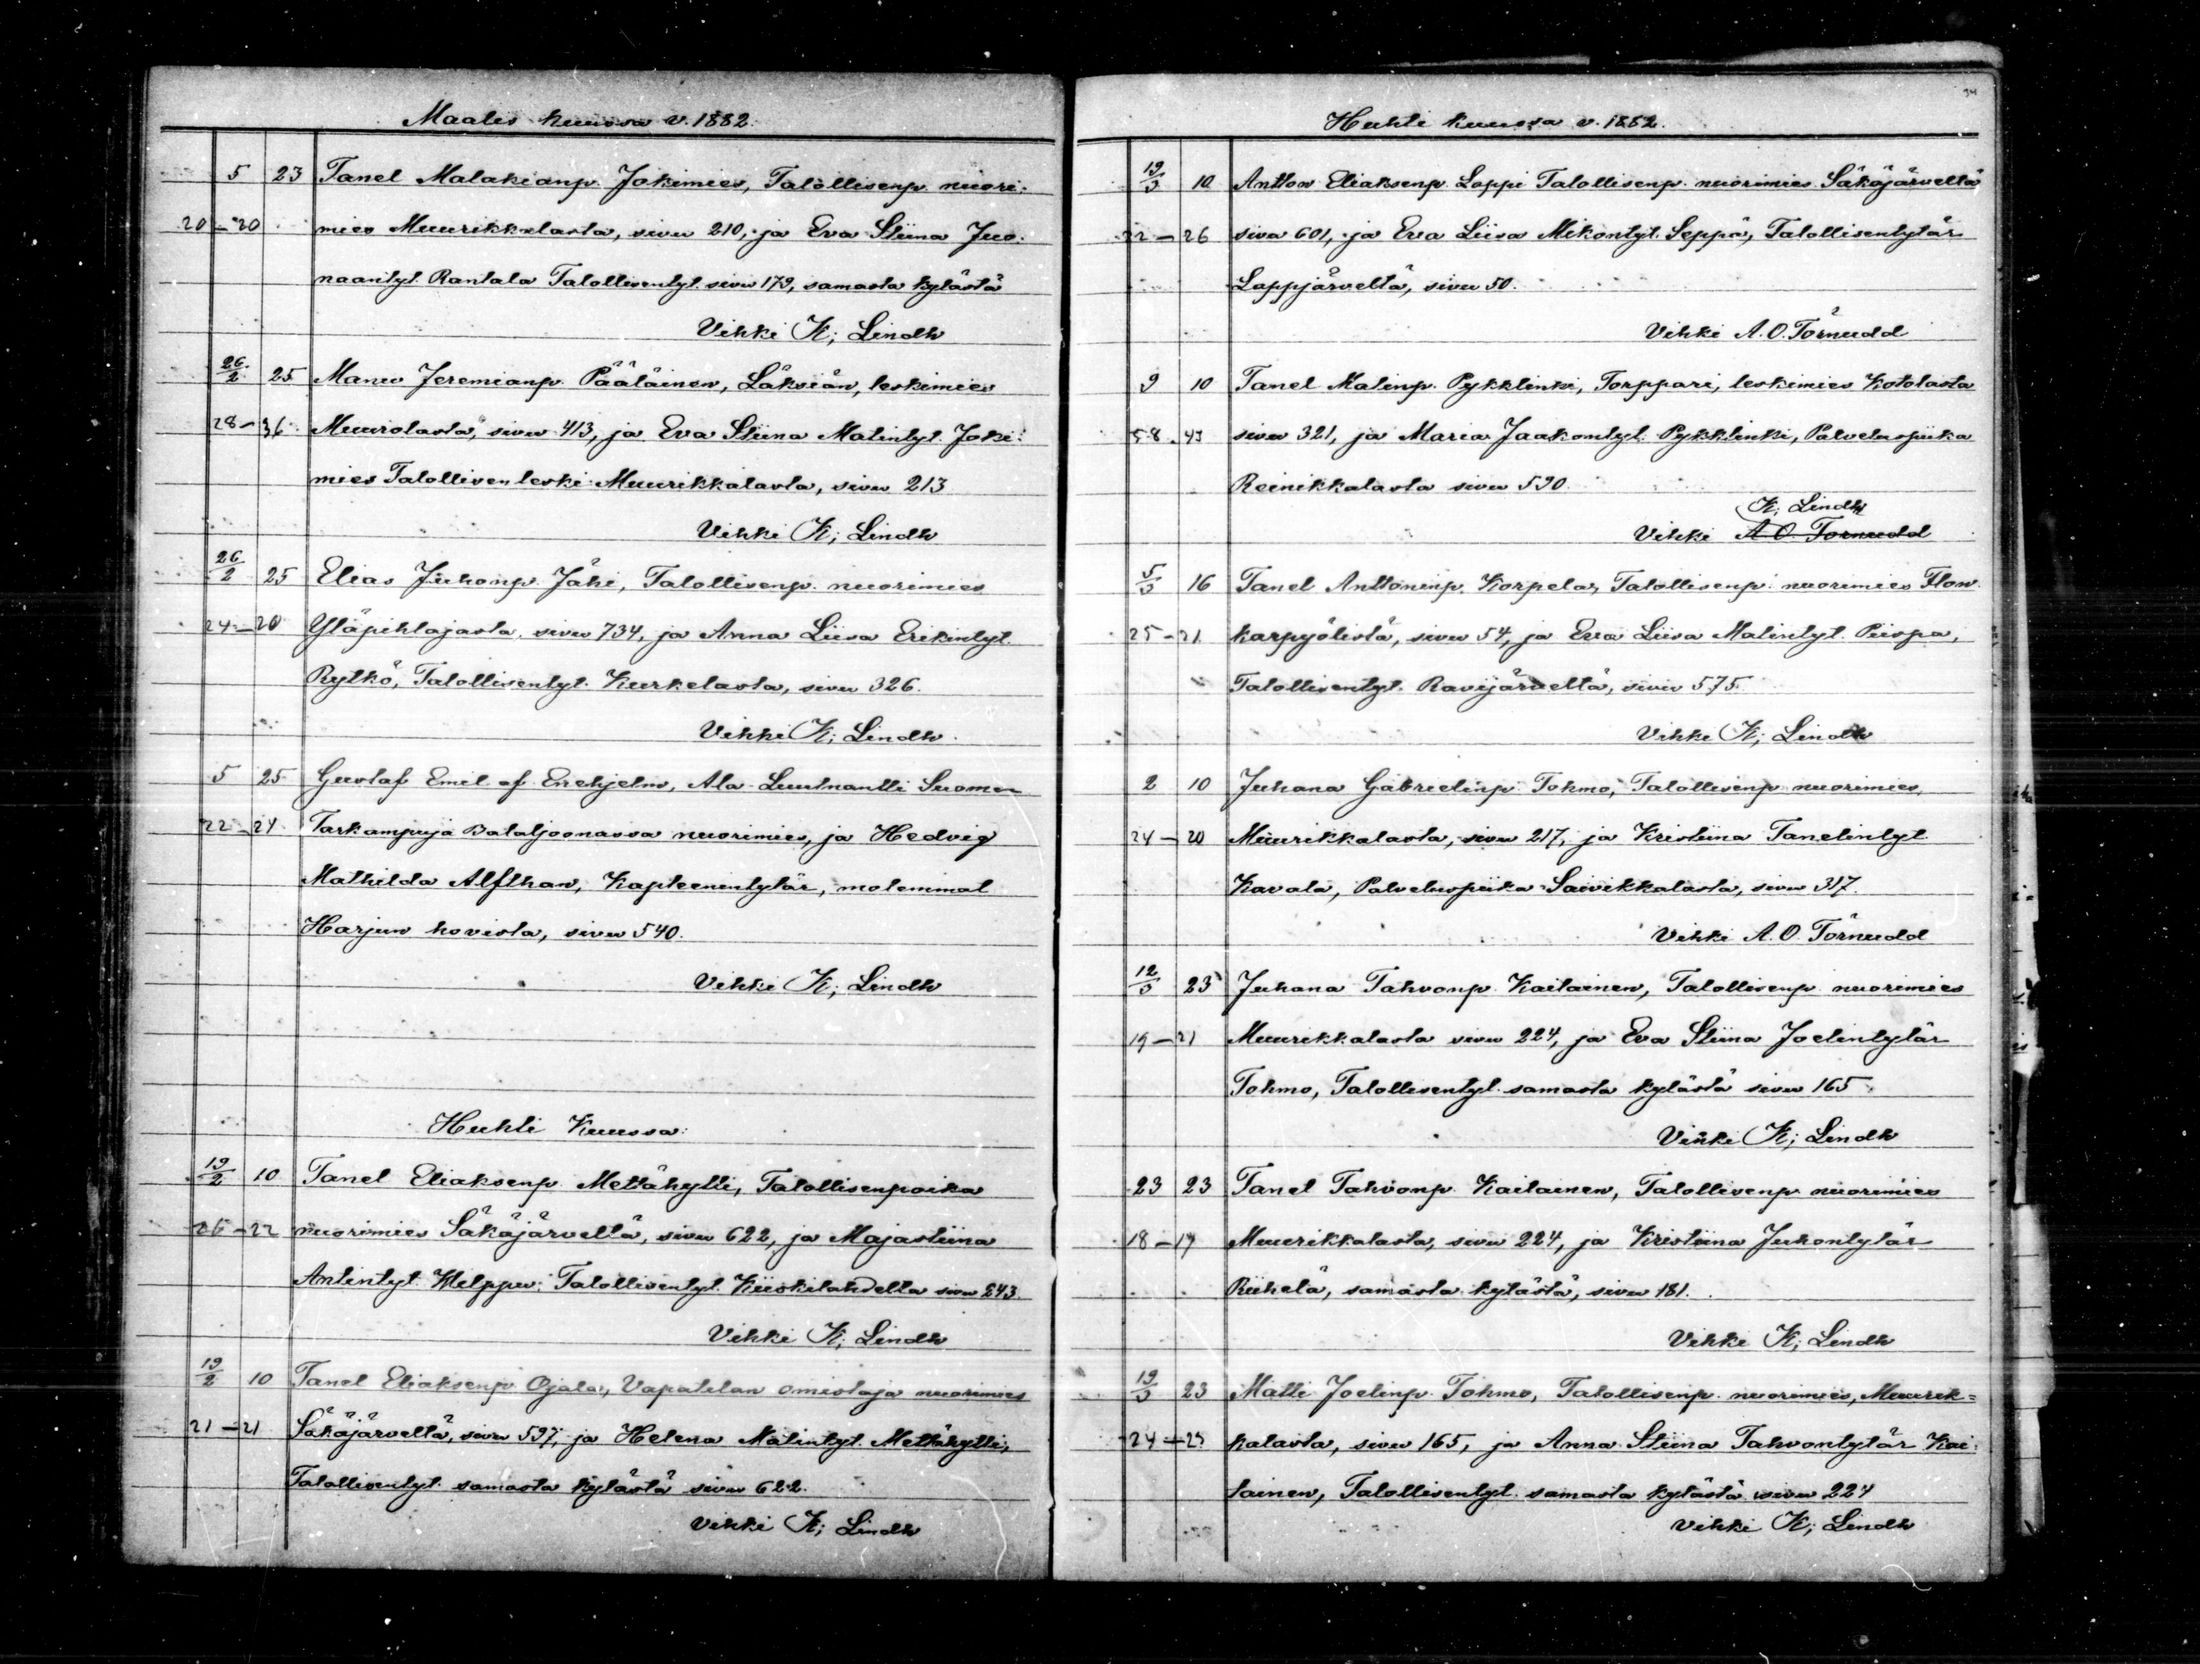 Maalis kuussa v. 1882.
5 23 Tanel Malakianp. Jokimies, Talollisenp. nuori-
20-20 mies Muurikkalasta, sivu 210, ja Eva Stiina Juo-
naantyt. Rantala Talollisentyt. sivu 179, samasta kylästä
Vihki K; Lindh
26/2 25 Manu Jeremianp. Pääläinen, Läksiän, leskimies
28-36 Muurolasta, sivu 413, ja Eva Stiina Matintyt. Joki-
mies Talollisen leski Muurikkalasta, sivu 213
Vihki K; Lindh
26/2 25 Elias Juhonp. Jähi, Talollisenp. nuorimies
24-20 Yläpihlajasta, sivu 734, ja Anna Liisa Erikintyt.
Rytkö, Talollisentyt. Kurkelasta, sivu 326.
Vihki K; Lindh.
5 25 Gustaf Emil af Enehjelm, Ala-Luutnantti Suomen
22-24 Tarkampuja Bataljoonassa nuorimies, ja Hedvig
Mathilda Alfthan, Kapteenintytär, molemmat
Harjun hovista, sivu 540.
Vihki K; Lindh
Huhti Kuussa.
19/2 10 Tanel Eliaksenp. Mettähytti, Talollisenpoika
26-22 nuorimies Säkäjärveltä, sivu 622, ja Majastiina
Antintyt. Helppu, Talollisentyt. Kiiskilahdelta sivu 243.
Vihki K; Lindh
19/2 10 Tanel Eliaksenp. Ojala, Vapatilan omistaja nuorimies
21-21 Säkäjärveltä, sivu 597, ja Helena Matintyt. Mettähytti,
Talollisentyt. samasta kylästä sivu 622.
Vihki K; Lindh
Huhti kuussa v. 1882.
19/3 10 Anton Eliaksenp. Loppi Talollisenp. nuorimies Säkäjärveltä
22-26 sivu 601, ja Eva Liisa Mikontyt. Seppä, Talollisentytär
Lappjärveltä, sivu 50.
Vihki A. O. Törnudd
9 10 Tanel Matinp. Pykklinki, Torppari, leskimies Kotolasta
58-43 sivu 321, ja Maria Jaakontyt. Pykklinki, Palveluspiika
Reinikkalasta sivu 590.
K; Lindh
Vihki A. O. Törnudd
5/3 16 Tanel Anttoninp. Korpela, Talollisenp. nuorimies Flon
25-21 karpyölistä, sivu 54, ja Eva Liisa Matintyt. Piispa,
Talollisentyt. Ravijärveltä, sivu 575.
Vihki K; Lindh
2 10 Juhana Gabrielinp. Tohmo, Talollisenp. nuorimies,
24-20 Muurikkalasta, sivu 217, ja Kristiina Tanelintyt.
Kavala, Palveluspiika Saivikkalasta, sivu 317.
Vihki A. O. Törnudd
12/3 23 Juhana Tahvonp. Kaitainen, Talollisenp. nuorimies
19-21 Muurikkalasta sivu 224, ja Eva Stiina Joelintytär
Tohmo, Talollisentyt. samasta kylästä sivu 165
Vihki K; Lindh
23 23 Tanel Tahvonp. Kaitainen, Talollisenp. nuorimies
18-19 Muurikkalasta, sivu 224, ja Kristiina Juhontytär
Riihelä, samasta kylästä, sivu 181.
Vihki K; Lindh
19/3 23 Matti Joelinp. Tohmo, Talollisenp. nuorimies, Muurik-
24-25 kalasta, sivu 165, ja Anna Stiina Tahvontytär Kai-
tainen, Talollisentyt. samasta kylästä sivu 224
Vihki K; Lindh